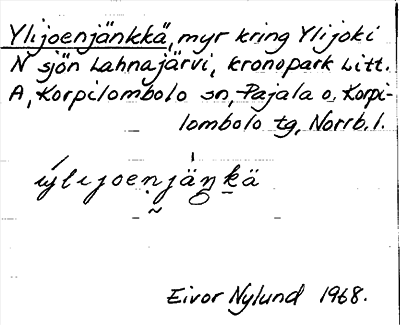 Ylijoenjänkkä, myr kring Ylijoki
N sjön Lahnajärvi, kronopark Litt.
A, Korpilombolo sn, Pajala o. Korpi-
lombolo tg, Norrb. l.
ylijoenjäŋkä
Eivor Nylund 1968.